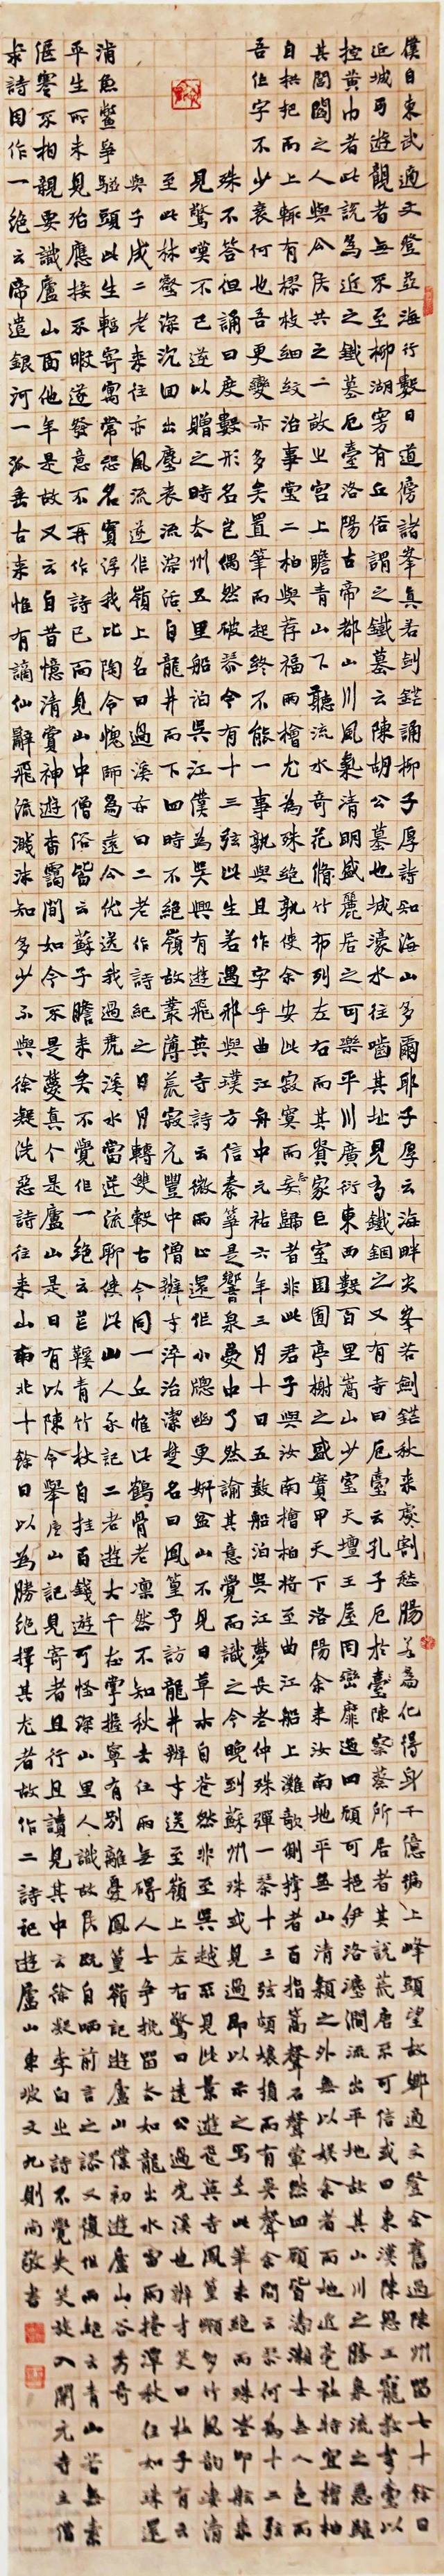 僕自東武適文登並海行數日道傍諸峯真若劍鋩誦柳子厚詩知海山多爾耶子厚云海畔尖峯若劍鋩秋來處割愁腸若為化得身千億徧上峰頭望故鄉適文登余舊過陳州留七十餘日
近城可遊觀者無不至柳湖旁有丘俗謂之鐵墓云陳胡公墓也城濠水往嚙其址見有鐵錮之又有寺曰厄臺云孔子厄於陳蔡所居者其說荒唐不可信或曰東漢陳愍王寵教弩臺以
控黃巾者此說為近之鐵墓厄臺洛陽古帝都山川風氣清明盛麗居之可樂平川廣衍東西數百里嵩山少室天壇王屋岡巒靡迤四顧可挹伊洛瀍澗流出平地故其山川之勝泉流之悉雖
其閭閻之人與公侯共之一畝之宮上瞻青山下聽流水奇花脩竹布列左右而其貴家巨室園囿亭榭之盛實甲天下洛陽余來汝南地平無山清潁之外無以娛余者而地近亳社特宜檜柏
自拱把而上輒有樛枝細紋治事堂二柏與荐福兩檜尤為殊絕孰使余安此寂寞而忘歸者非此君子與汝南檜柏將至曲江船上灘欹側撐者百指篙聲石聲犖然四顧皆濤瀨士無人色而
吾作字不少衰何也吾更變亦多矣置筆而起終不能一事孰與且作字乎曲江舟中元祐六年三月十日五鼓船泊吳江夢長老仲殊彈一琴十三弦頗壞損而有異聲余問云琴何為十三弦
殊不答但誦曰度數形名豈偶然破琴今有十三弦此生若遇邢與璞方信秦箏是響泉夢中了然諭其意覺而識之今晚到蘇州殊或見過即以示之寫至此筆未絕而殊老叩舷來
見驚嘆不已遂以贈之時去州五里船泊吳江僕為吳興有遊飛英寺詩云微雨止還作小牕幽更妍盆山不見日草木自蒼然非至吳越不見此景遊飛英寺鳳篁嶺多竹風韻凄清
至此林壑深沉迥出塵表流淙活自龍井而下四時不絕嶺故叢薄荒寂元豐中僧辨才淬治潔楚名曰風篁予訪龍井辨才送至嶺上左右驚曰遠公過虎溪也辨才笑曰杜子有云
與子成二老來往亦風流遂作嶺上名曰過溪亦曰二老作詩紀之日月轉雙轂古今同一丘惟此鶴骨老凜然不知秋去住兩無碍人士爭挽留去如龍出水雷雨捲潭秋住如珠還
浦魚鱉爭駢頭此生暫寄寓常恐名實浮我比陶令愧師為遠公優送我過虎溪水當逆流聊使此山人永記二老遊大千在掌握寧有別離憂鳳篁嶺記遊廬山僕初遊廬山谷秀奇
平生所未見殆應接不暇遂發意不再作詩已而見山中僧俗皆云蘇子瞻來矣不覺作一絕云芒鞵青竹杖自挂百錢遊可怪深山里人識故侯既自哂前言之謬又復作兩絕云青山若無素
偃蹇不相親要識廬山面他年是故又云自昔憶清賞神遊杳靄間如今不是夢真个是廬山是日有以陳令舉廬山記見寄者且行且讀見其中云徐凝李白之詩不覺失笑旋入開元寺主僧
求詩因作一絕云帝遣銀河一派垂古來惟有謫仙辭飛流濺沫知多少不與徐凝洗惡詩往來山南北十餘日以為勝絕擇其尤者故作二詩記遊廬山東坡文九則尚敬書